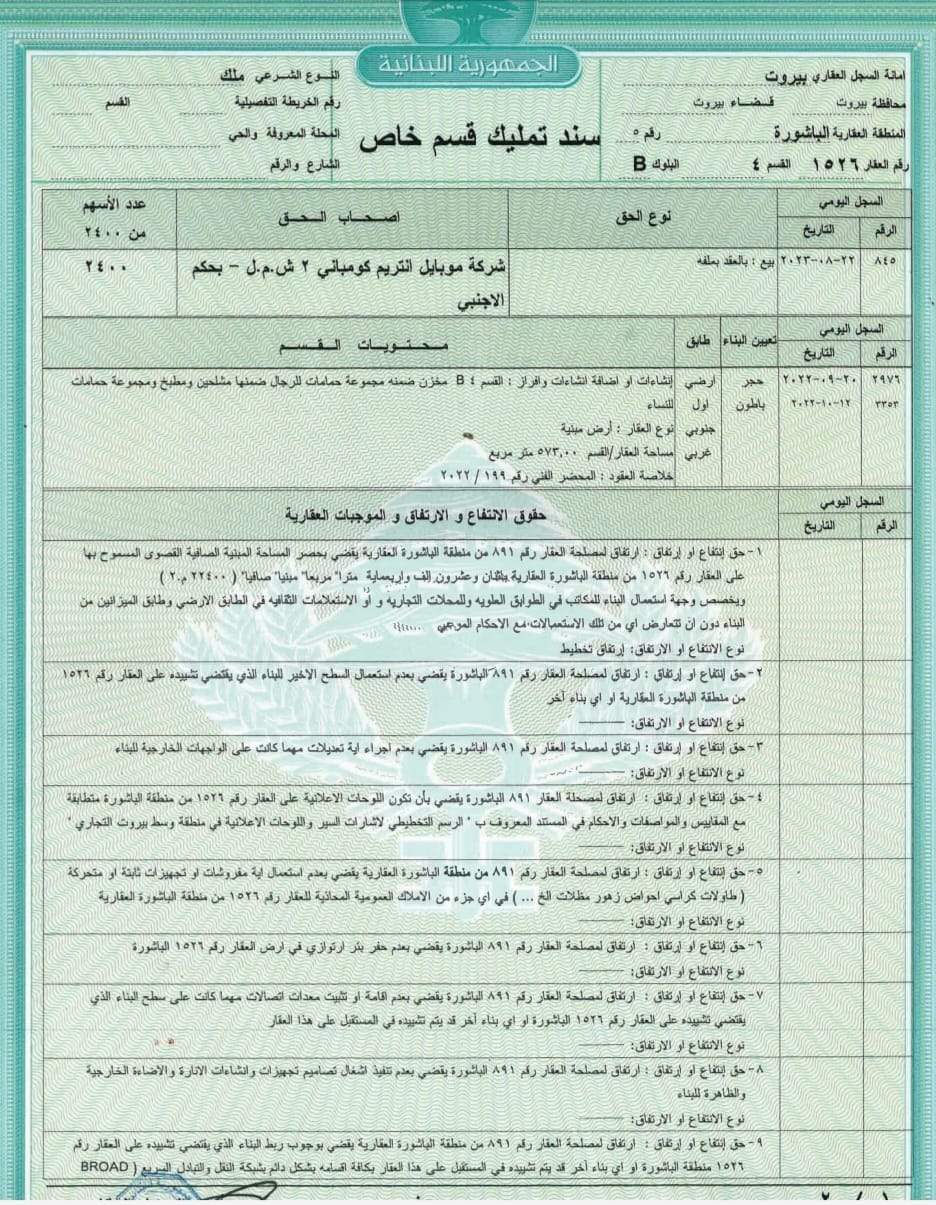 الجمهورية اللبنانية
امانة السجل العقاري بيروت
محافظة بيروت قضاء بيروت
المنطقة العقارية الباشورة رقم ٥
رقم العقار ١٥٢٦ القسم ٤ البلوك B
سند تمليك قسم خاص
النوع الشرعي ملك
رقم الخريطة التفصيلية القسم
المحلة المعروفة والحي
الشارع والرقم
السجل اليومي
الرقم التاريخ
نوع الحق
اصحاب الحق
عدد الأسهم
من ٢٤٠٠
٨٤٥ ٢٠٢٣-٠٨-٢٢ بيع : بالعقد بملفه
شركة موبايل انتريم كومباني ٢ ش.م.ل - بحكم
الاجنبي
٢٤٠٠
السجل اليومي
الرقم التاريخ
تعيين البناء طابق محتويات القسم
٢٩٧٦ ٢٠٢٢-٠٩-٢٠ حجر ارضي إنشاءات او اضافة انشاءات وافراز : القسم ٤ B مخزن ضمنه مجموعة حمامات للرجال ضمنها مشلحين ومطبخ ومجموعة حمامات
٣٣٥٣ ٢٠٢٢-١٠-١٢ باطون اول للنساء
جنوبي نوع العقار : أرض مبنية
غربي مساحة العقار/القسم ٥٧٣,٠٠ متر مربع
خلاصة العقود : المحضر الفني رقم ١٩٩ / ٢٠٢٢
السجل اليومي
الرقم التاريخ
حقوق الانتفاع و الارتفاق و الموجبات العقارية
١- حق إنتفاع او إرتفاق : ارتفاق لمصلحة العقار رقم ٨٩١ من منطقة الباشورة العقارية يقضي بحصر المساحة المبنية الصافية القصوى المسموح بها
على العقار رقم ١٥٢٦ من منطقة الباشورة العقارية باثنان وعشرون إلف واربعماية مترا" مربعا" مبنيا" صافيا" ( ٢٢٤٠٠ م.٢ )
ويخصص وجهة استعمال البناء للمكاتب في الطوابق العلويه وللمحلات التجاريه و أو الاستعلامات الثقافيه في الطابق الارضي وطابق الميزانين من
البناء دون ان تتعارض اي من تلك الاستعمالات مع الاحكام
نوع الانتفاع او الارتفاق: إرتفاق تخطيط
٢- حق إنتفاع او إرتفاق : ارتفاق لمصلحة العقار رقم ٨٩١ الباشورة يقضي بعدم استعمال السطح الاخير للبناء الذي يقتضي تشييده على العقار رقم ١٥٢٦
من منطقة الباشورة العقارية او اي بناء أخر
نوع الانتفاع او الارتفاق:
٣- حق إنتفاع او إرتفاق : ارتفاق لمصلحة العقار رقم ٨٩١ الباشورة يقضي بعدم اجراء اية تعديلات مهما كانت على الواجهات الخارجية للبناء
نوع الانتفاع او الارتفاق:
٤- حق إنتفاع او إرتفاق : ارتفاق لمصحلة العقار ٨٩١ الباشورة يقضي بأن تكون اللوحات الاعلانية على العقار رقم ١٥٢٦ من منطقة الباشورة متطابقة
مع المقاييس والمواصفات والاحكام في المستند المعروف ب " الرسم التخطيطي لاشارات السير واللوحات الاعلانية في منطقة وسط بيروت التجاري "
نوع الانتفاع او الارتفاق:
٥- حق إنتفاع او إرتفاق : ارتفاق لمصلحة العقار رقم ٨٩١ من منطقة الباشورة العقارية يقضي بعدم استعمال اية مفروشات او تجهيزات ثابتة او متحركة
( طاولات كراسي احواض زهور مظلات الخ ... ) في اي جزء من الاملاك العمومية المحاذية للعقار رقم ١٥٢٦ من منطقة الباشورة العقارية
نوع الانتفاع او الارتفاق:
٦- حق إنتفاع او إرتفاق : ارتفاق لمصلحة العقار رقم ٨٩١ الباشورة يقضي بعدم حفر بئر ارتوازي في ارض العقار رقم ١٥٢٦ الباشورة
نوع الانتفاع او الارتفاق:
٧- حق إنتفاع او إرتفاق : ارتفاق لمصلحة العقار رقم ٨٩١ الباشورة يقضي بعدم اقامة او تثبيت معدات اتصالات مهما كانت على سطح البناء الذي
يقتضي تشييده على العقار رقم ١٥٢٦ الباشورة او اي بناء أخر قد يتم تشييده في المستقبل على هذا العقار
نوع الانتفاع او الارتفاق:
٨- حق إنتفاع او إرتفاق : ارتفاق لمصلحة العقار رقم ٨٩١ الباشورة يقضي بعدم تنفيذ اشغال تصاميم تجهيزات وانشاءات الانارة والاضاءة الخارجية
والظاهرة للبناء
نوع الانتفاع او الارتفاق:
٩- حق إنتفاع او إرتفاق : ارتفاق لمصلحة العقار رقم ٨٩١ من منطقة الباشورة العقارية يقضي بوجوب ربط البناء الذي يقتضي تشييده على العقار رقم
١٥٢٦ منطقة الباشورة او اي بناء أخر قد يتم تشييده في المستقبل على هذا العقار بكافة اقسامه بشكل دائم بشبكة النقل والتبادل السريع ( BROAD